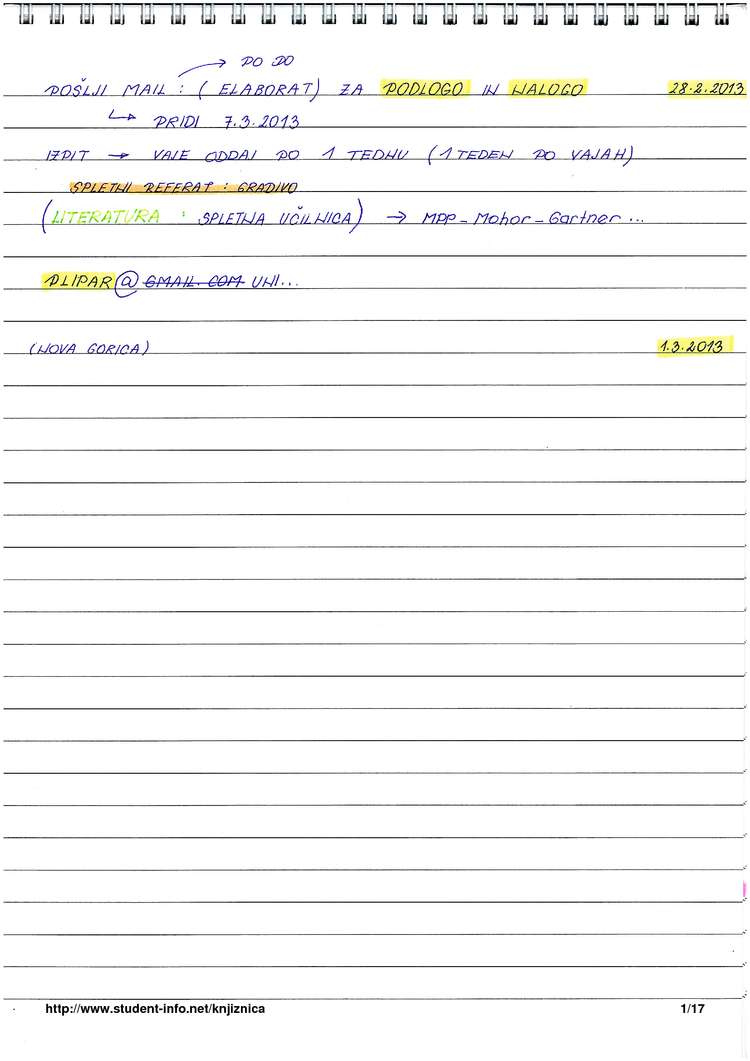 → PO DO
POŠLJI MAIL : ( ELABORAT) ZA PODLOGO IN NALOGO 28.2.2013
↳ PRIDI 7.3.2013
IZPIT → VAJE ODDAJ PO 1 TEDNU (1 TEDEN PO VAJAH)
SPLETNI REFERAT : GRADIVO
(LITERATURA : SPLETNA UČILNICA) → MPP_Mohor_Gartner ...
PLIPAR@ GMAIL.COM UNI...
(NOVA GORICA) 1.3.2013
http://www.student-info.net/knjiznica 1/17